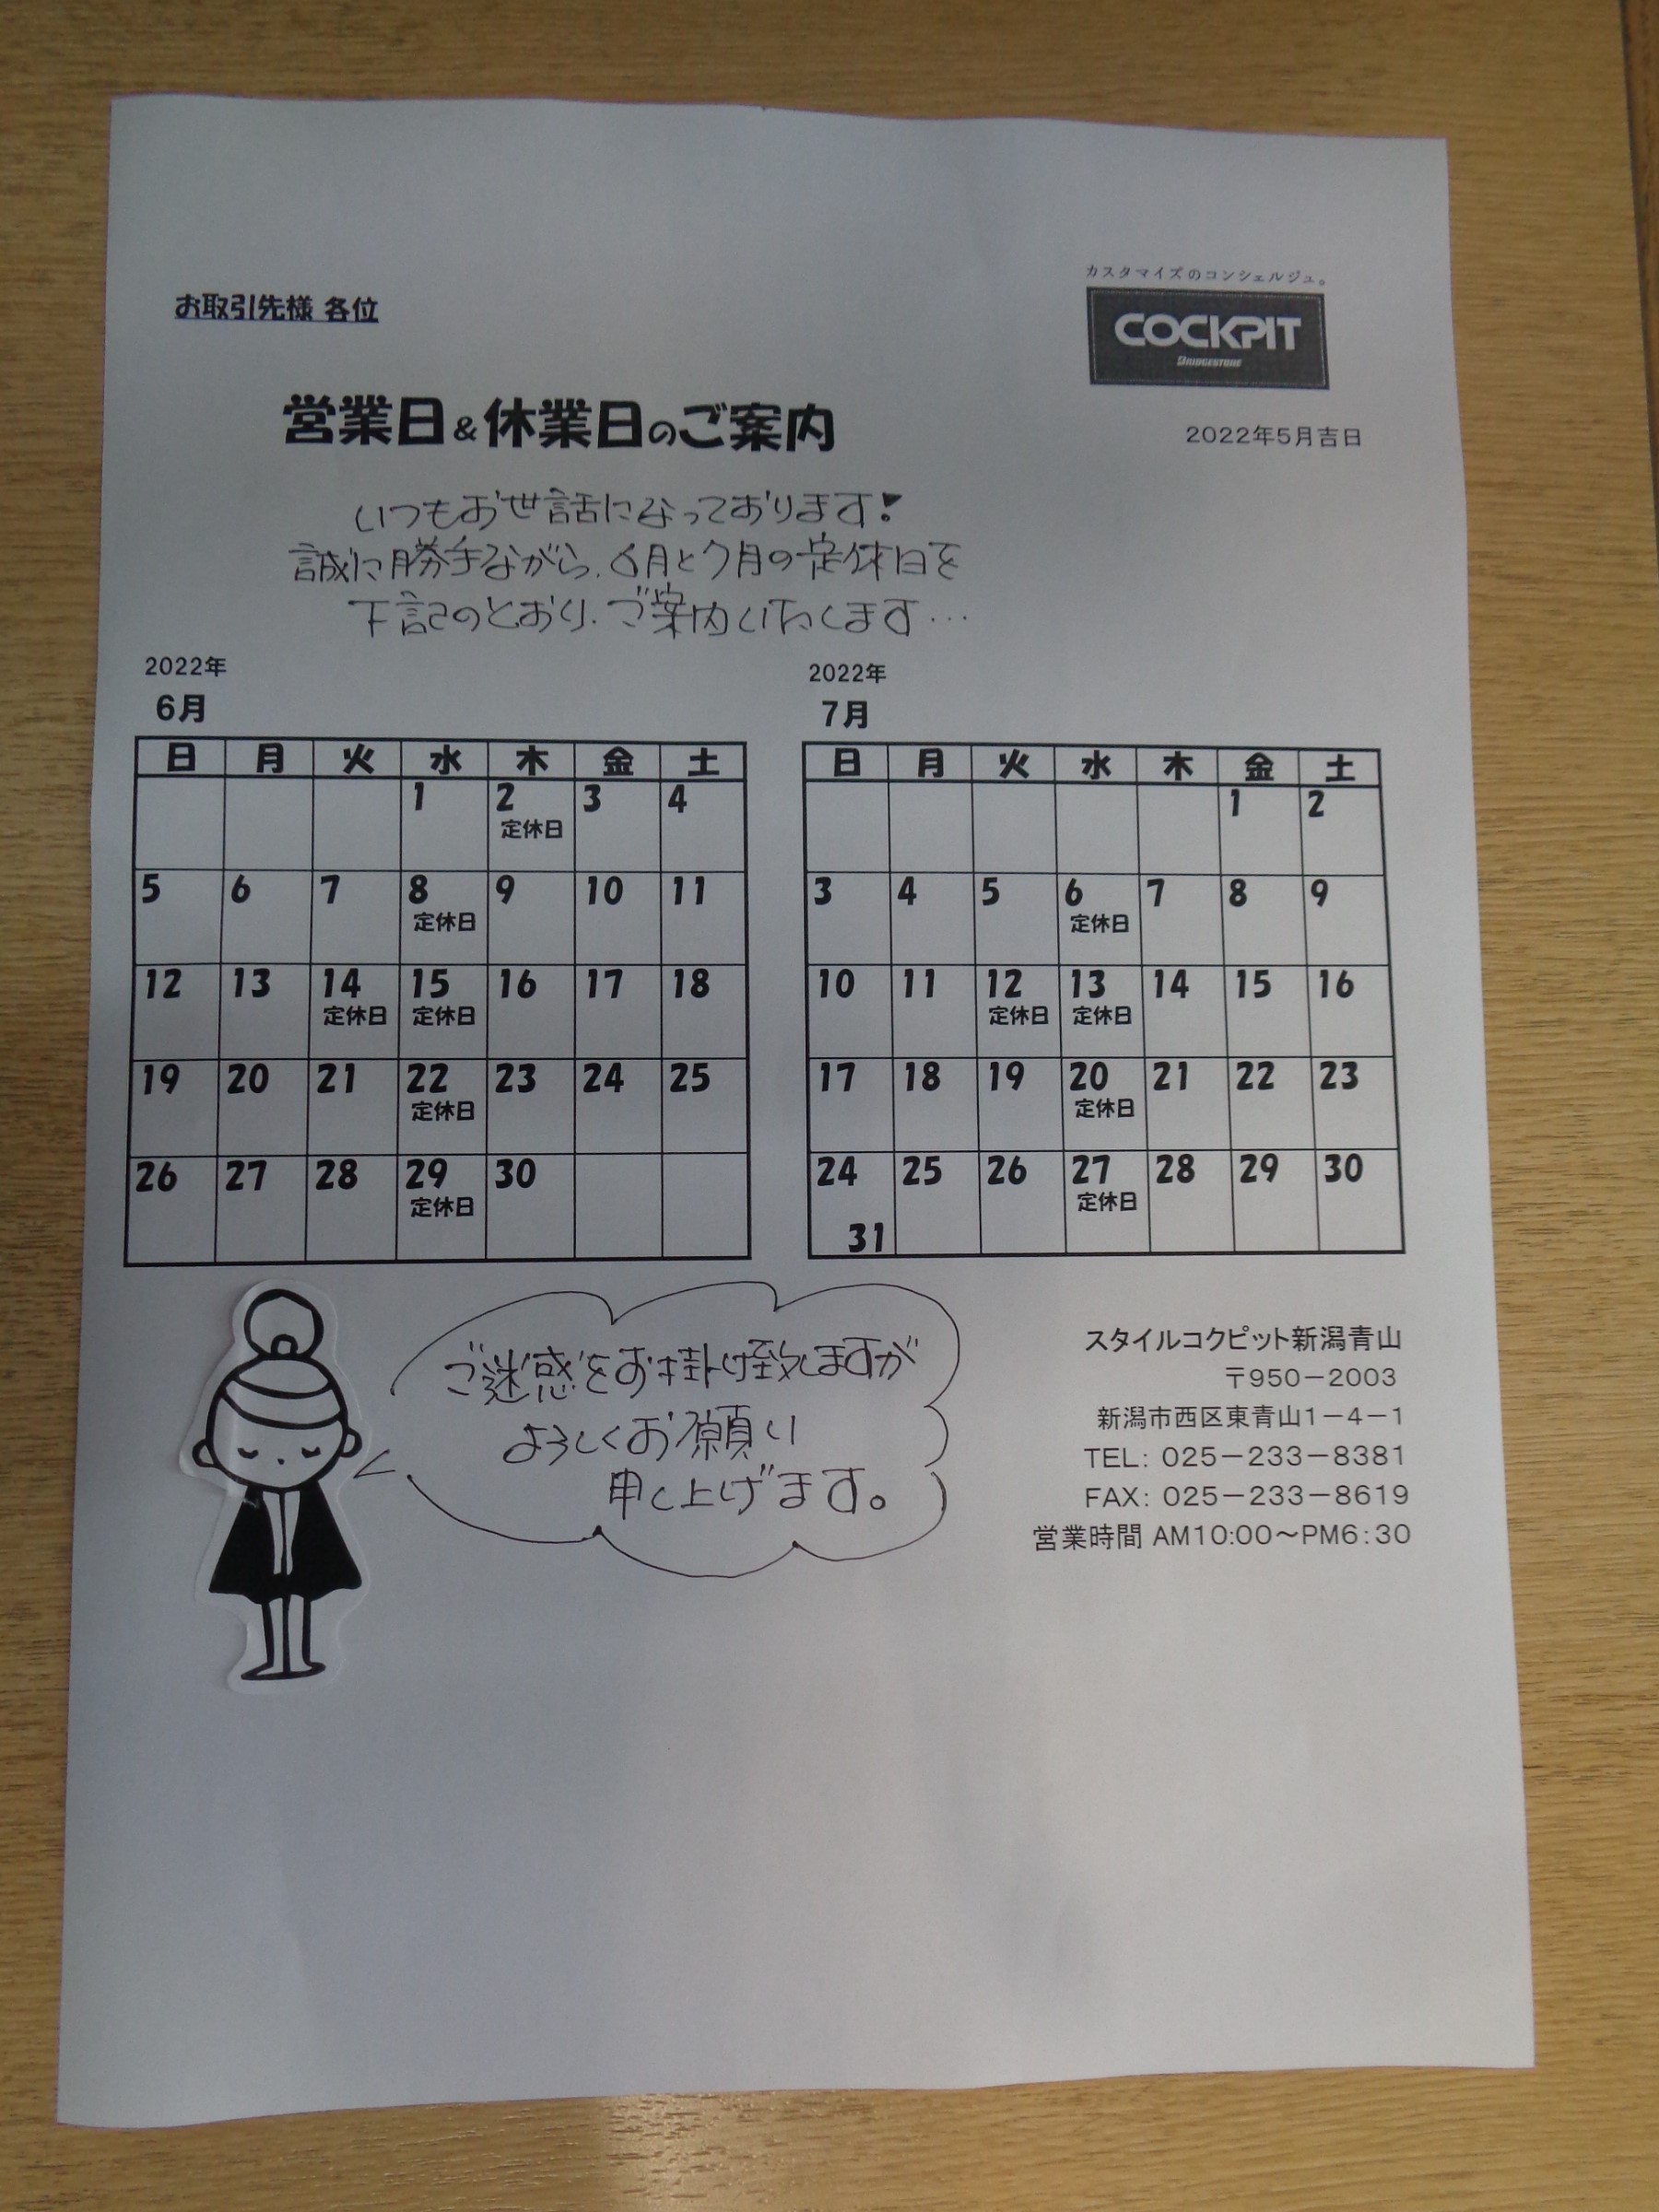 カスタマイズのコンシェルジュ。
COCKPIT
BRIDGESTONE
お取引先様 各位
営業日&休業日のご案内
2022年5月吉日
いつもお世話になっております!
誠に勝手ながら、6月と7月の定休日を
下記のとおり、ご案内いたします…
2022年
6月
日 月 火 水 木 金 土
1 2 3 4
定休日
5 6 7 8 9 10 11
定休日
12 13 14 15 16 17 18
定休日 定休日
19 20 21 22 23 24 25
定休日
26 27 28 29 30
定休日
2022年
7月
日 月 火 水 木 金 土
1 2
3 4 5 6 7 8 9
定休日
10 11 12 13 14 15 16
定休日 定休日
17 18 19 20 21 22 23
定休日
24 25 26 27 28 29 30
定休日
31
ご迷惑をお掛け致しますが
よろしくお願い
申し上げます。
スタイルコクピット新潟青山
〒950-2003
新潟市西区東青山1-4-1
TEL: 025-233-8381
FAX: 025-233-8619
営業時間 AM10:00~PM6:30